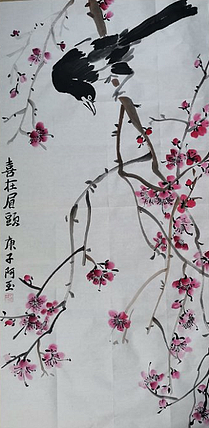 喜在眉頭
庚子阿玉